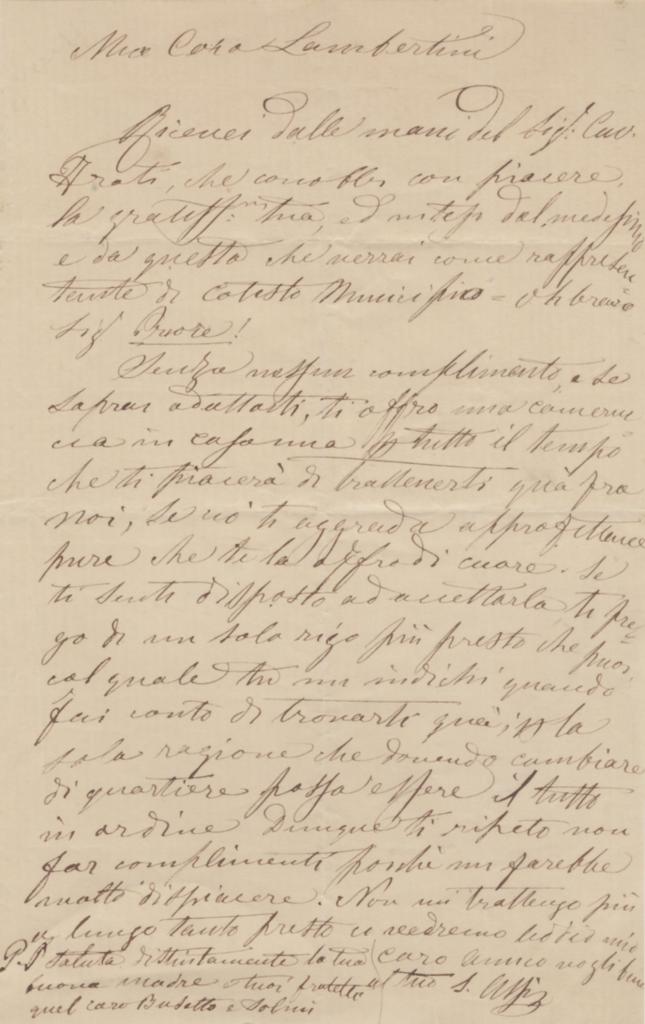 Mio Caro Lambertini
Ricevei dalle mani del Sig.r Cav.
Arati, che conobbi con piacere,
la gratiss.ma tua, ed intesi dal medesimo
e da questa che verrai come rappresen
tante di cotesto Municipio = Oh bravo
Sig.r Priore!
Senza nessun complimento, e se
saprai adattarti, ti offro una camerac
cia in casa mia p tutto il tempo
che ti piacerà di trattenerti quà fra
noi, se ciò ti aggrada approfittane
pure che te la offro di cuore. Se
ti senti disposto ad accettarla ti pre=
go di un solo rigo più presto che puoi,
col quale tu mi indichi quando
fai conto di trovarti quà; p la
sola ragione che dovendo cambiare
di quartiere possa essere il tutto
in ordine. Dunque ti ripeto non
far complimenti poichè mi farebbe
molto dispiacere. Non mi trattengo più
a lungo tanto presto ci vedremo addio mio
caro amico vogli bene
al tuo S.
P.S. Saluta distintamente la tua
buona madre tuoi fratelli
quel caro Busatto e Solmi